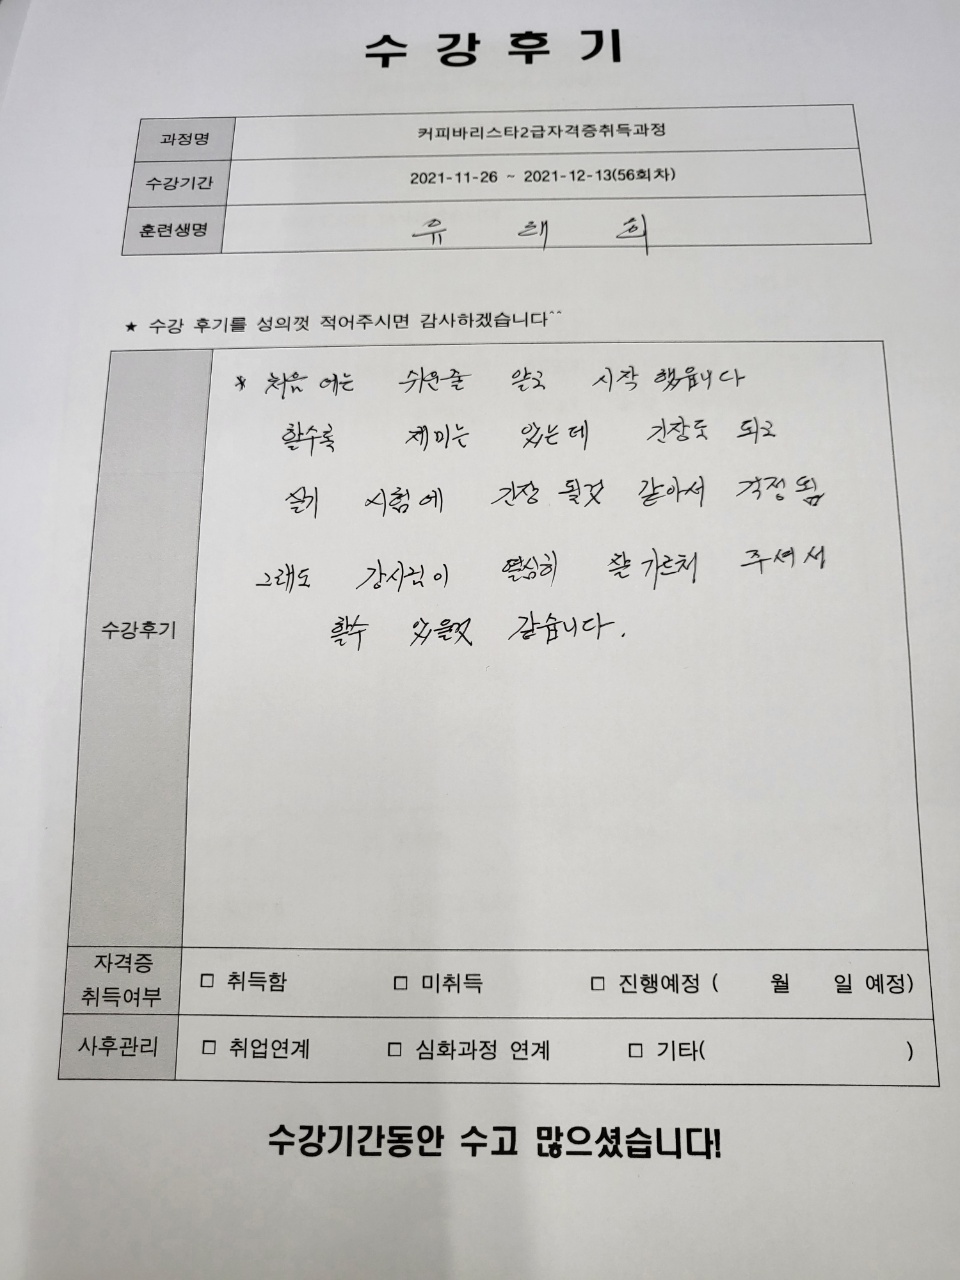 수 강 후 기
과정명 커피바리스타2급자격증취득과정
수강기간 2021-11-26 ~ 2021-12-13(56회차)
훈련생명 유 태 희
★ 수강 후기를 성의껏 적어주시면 감사하겠습니다^^
* 처음 에는 쉬운줄 알고 시작 했읍니다
할수록 재미는 있는데 긴장도 되고
실기 시험에 긴장 될것 같아서 걱정 됨
그래도 강사님이 열심히 잘 가르처 주셔서
수강후기
할수 있을것 같습니다.
자격증
취득여부
□ 취득함 □ 미취득 □ 진행예정 ( 월 일 예정)
사후관리 □ 취업연계 □ 심화과정 연계 □ 기타( )
수강기간동안 수고 많으셨습니다!